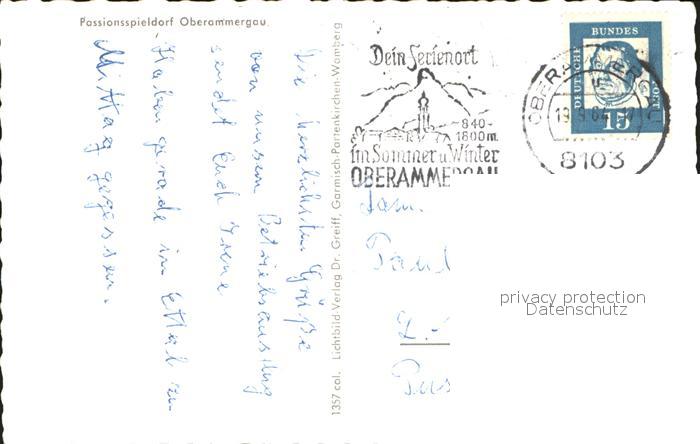 Passionsspieldorf Oberammergau
Die herzlichsten Grüße
von unserem Betriebsausflug
sendet Euch Irene
Haben gerade in Ettal zu-
Mittag gegessen.
1357 col. Lichtbild-Verlag Dr. Greiff, Garmisch-Partenkirchen-Wamberg
Dein Ferienort
840-
1800 m.
im Sommer u. Winter
OBERAMMERGAU
DEUTSCHE
BUNDES
POST
15
OBERAMMERG
8103
Fam.
Paul
privacy protection
Datenschutz